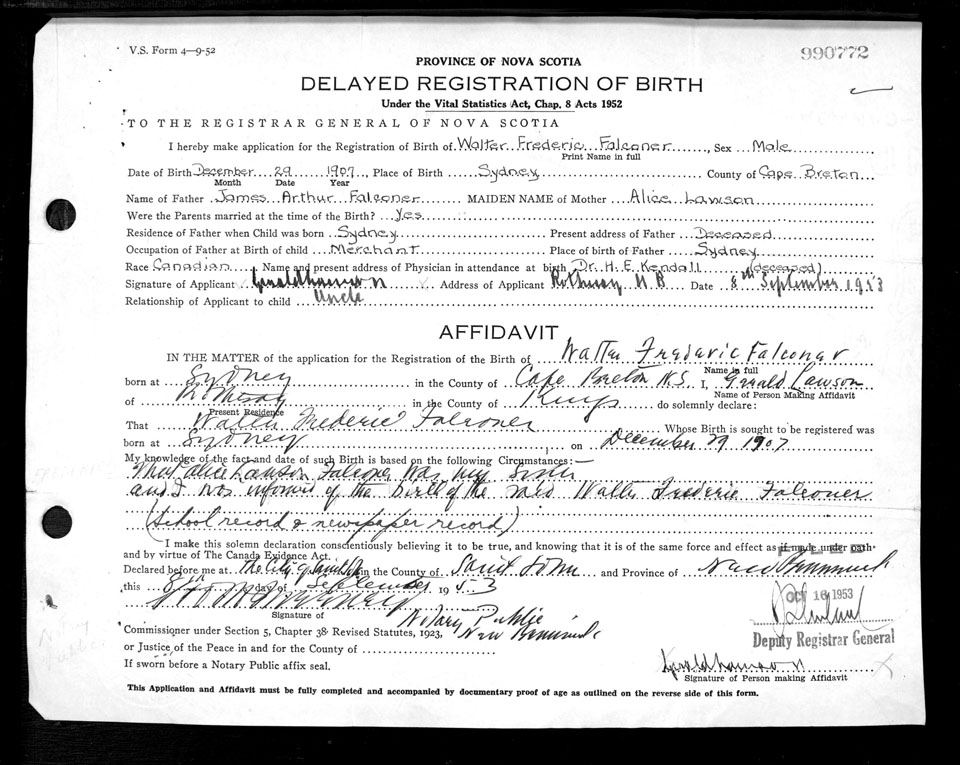 V.S. Form 4—9-52
990772
PROVINCE OF NOVA SCOTIA
DELAYED REGISTRATION OF BIRTH
Under the Vital Statistics Act, Chap. 8 Acts 1952
TO THE REGISTRAR GENERAL OF NOVA SCOTIA
I hereby make application for the Registration of Birth of Walter Frederic Falconer, Sex Male
Print Name in full
Date of Birth December 29 1907, Place of Birth Sydney County of Cape Breton
Month Date Year
Name of Father James Arthur Falconer MAIDEN NAME of Mother Alice Lawson
Were the Parents married at the time of the Birth? Yes
Residence of Father when Child was born Sydney Present address of Father Deceased
Occupation of Father at Birth of child Merchant Place of birth of Father Sydney
Race Canadian Name and present address of Physician in attendance at birth Dr. H. E. Kendall (deceased)
Signature of Applicant Gerald Lawson Address of Applicant Rothesay N B Date 8th September 1953
Relationship of Applicant to child Uncle
AFFIDAVIT
IN THE MATTER of the application for the Registration of the Birth of Walter Frederic Falconer
Name in full
born at Sydney in the County of Cape Breton N.S. I, Gerald Lawson
Name of Person Making Affidavit
of Rothesay in the County of Kings do solemnly declare:
Present Residence
That Walter Frederic Falconer Whose Birth is sought to be registered was
born at Sydney on December 29 1907
My knowledge of the fact and date of such Birth is based on the following Circumstances:
That Alice Lawson Falconer was my Sister
and I was informed of the birth of the said Walter Frederic Falconer
(School record & newspaper record)
I make this solemn declaration conscientiously believing it to be true, and knowing that it is of the same force and effect as if made under oath
and by virtue of The Canada Evidence Act.
Declared before me at the City of Saint John in the County of Saint John and Province of New Brunswick
this 8th day of September 1953
OCT 16 1953
Signature of Notary Public
Deputy Registrar General
Commissioner under Section 5, Chapter 38 Revised Statutes, 1923, New Brunswick
or Justice of the Peace in and for the County of
If sworn before a Notary Public affix seal.
Gerald Lawson
Signature of Person making Affidavit
This Application and Affidavit must be fully completed and accompanied by documentary proof of age as outlined on the reverse side of this form.